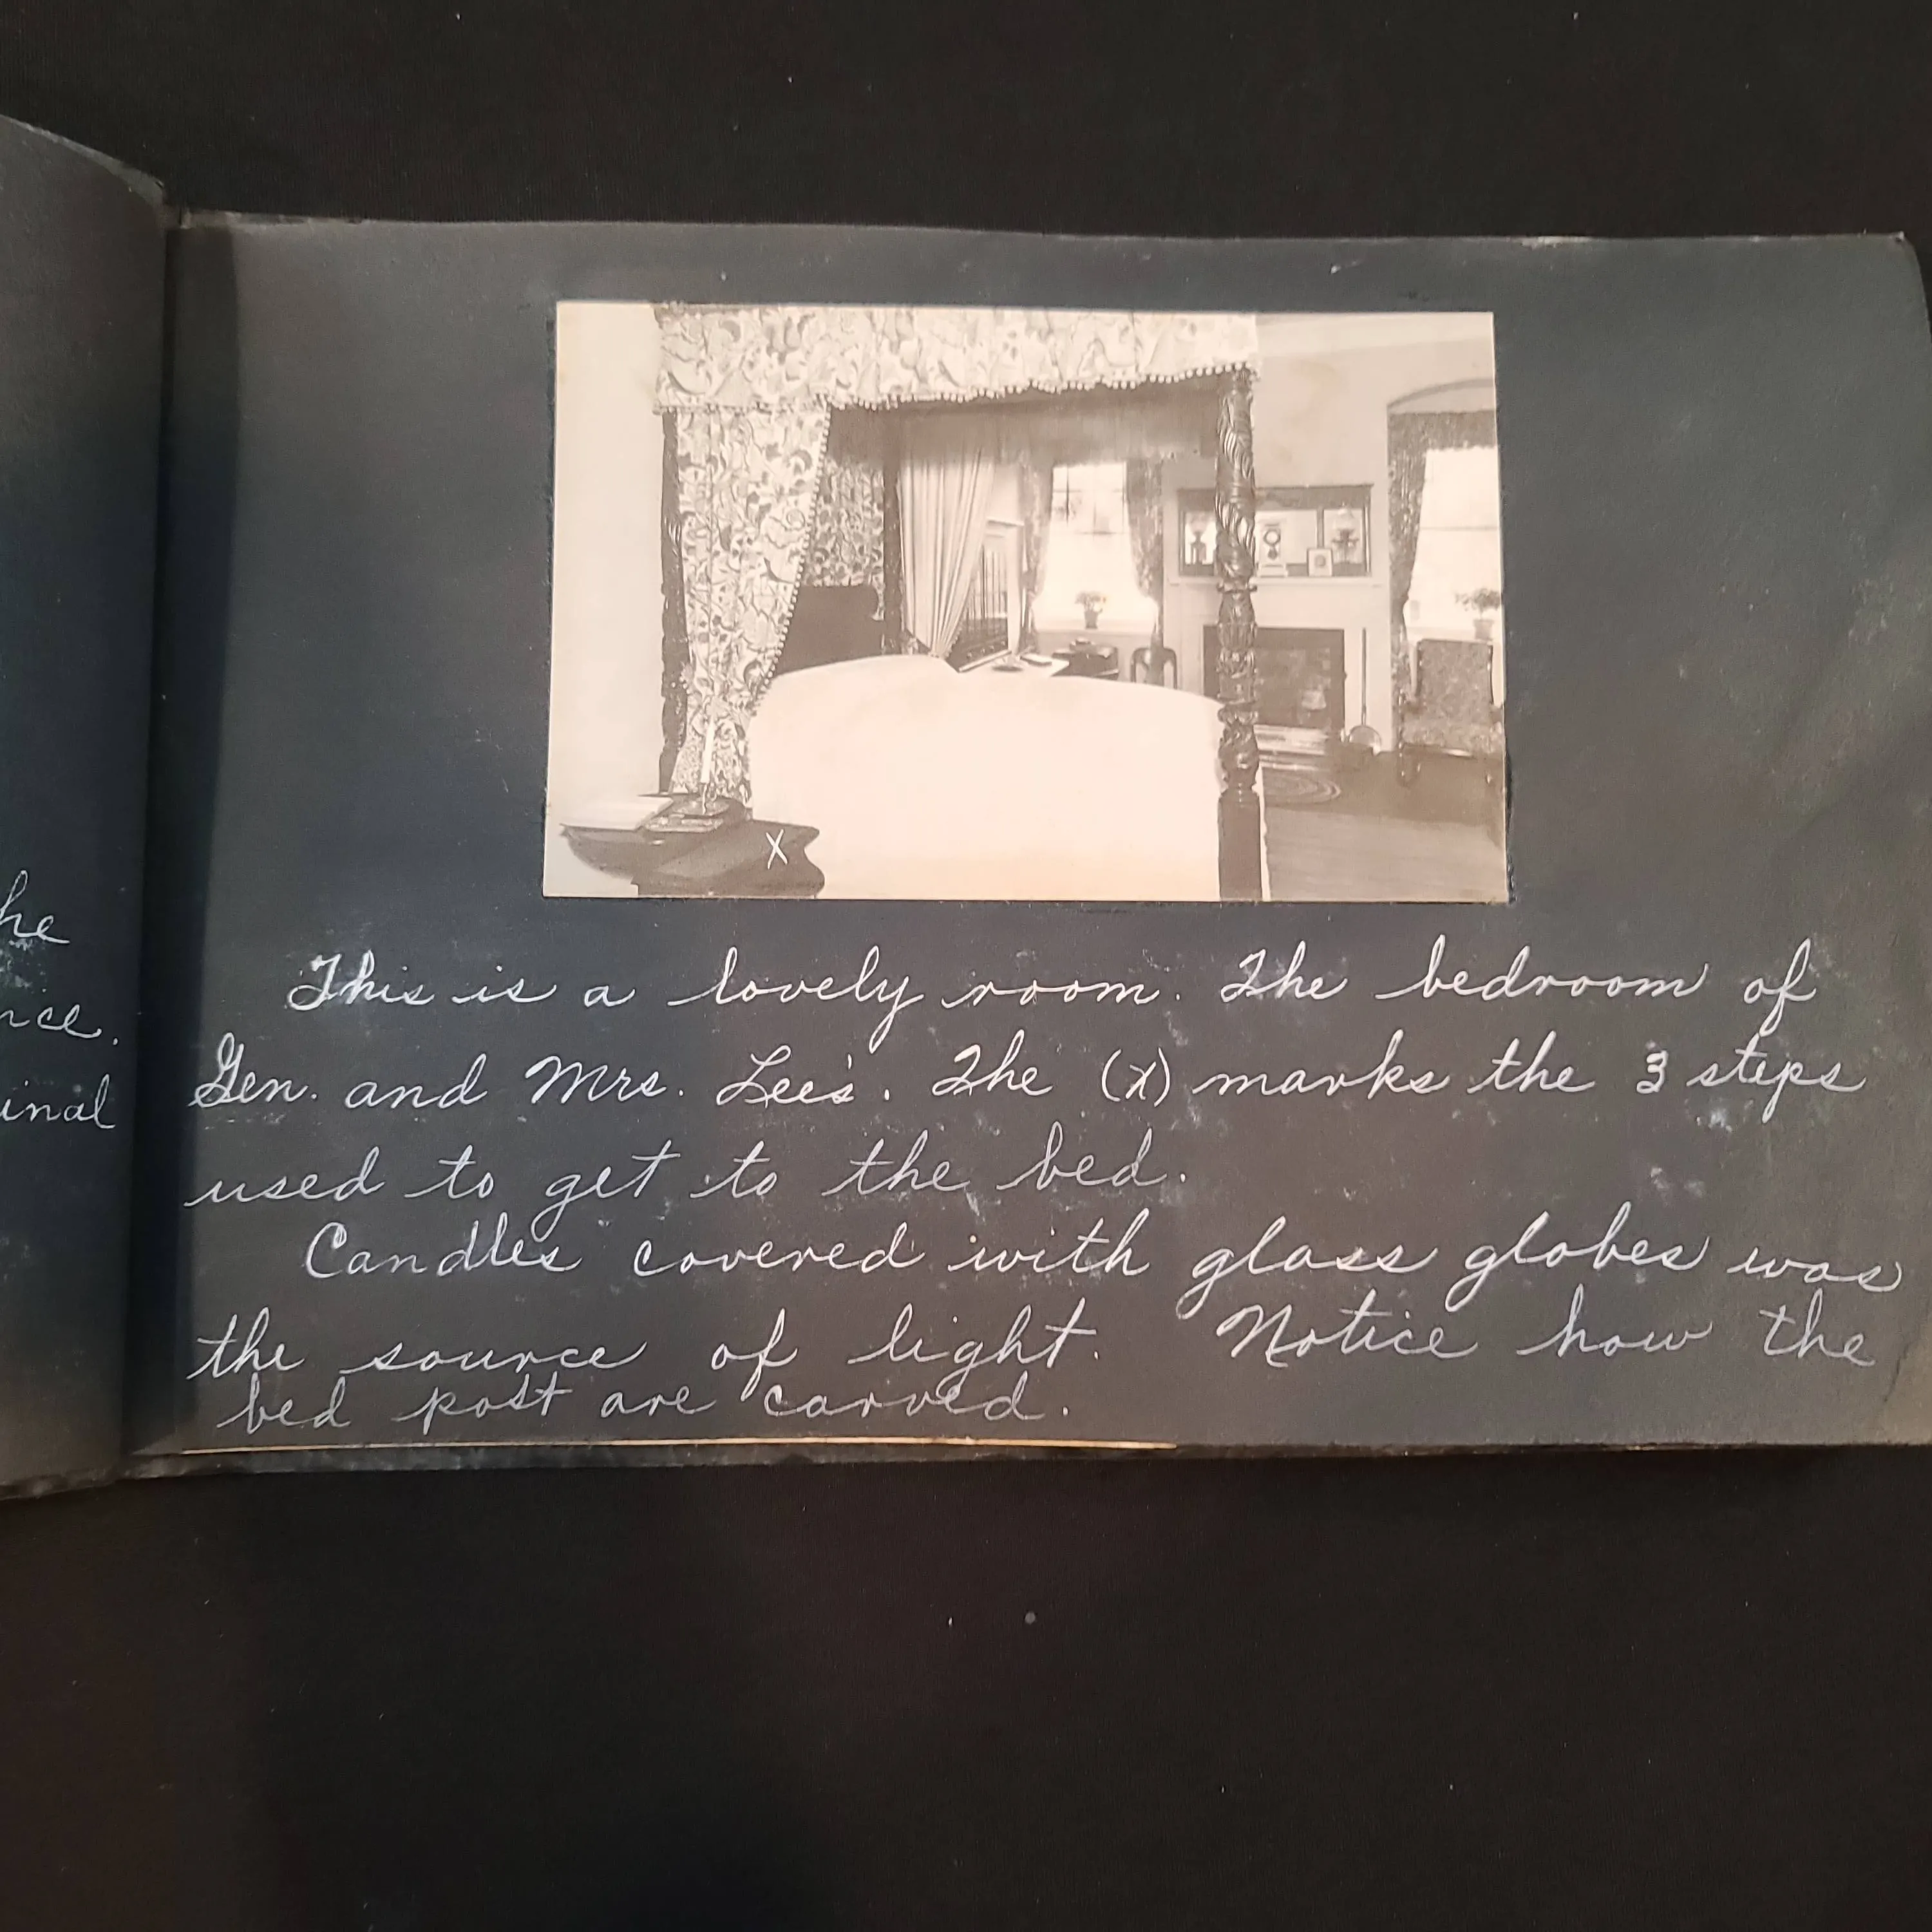 he
nce.
inal
X
This is a lovely room. The bedroom of
Gen. and Mrs. Lee's. The (X) marks the 3 steps
used to get to the bed.
Candles covered with glass globes was
the source of light. Notice how the
bed post are carved.